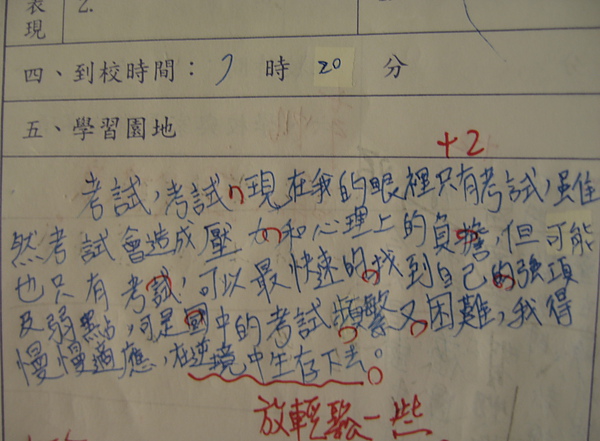 表現 2.
四、到校時間：7 時 20 分
五、學習園地
+2
考試,考試,現在我的眼裡只有考試,雖
然考試會造成壓力和心理上的負擔,但可能
也只有考試,可以最快速的找到自己的強項
及弱點,可是國中的考試頻繁又困難,我得
慢慢適應,在逆境中生存下去。
放輕鬆一些